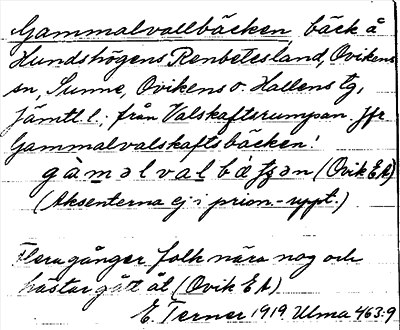 Gammalvallbäcken, bäck å
Hundshögens Renbetesland, Ovikens
sn, Sunne, Ovikens o. Hallens tg,
Jämtl. l.; från Valskaftsrumpan. Jfr
Gammalvalskaftsbäcken!
gàməlvalbétʒən (Ovik EA)
(Aksenterna ej i prion.-uppt.)
Flera gånger folk nära nog och
hästar gått åt (Ovik EA)
E. Terner 1919 Ulma 463:9